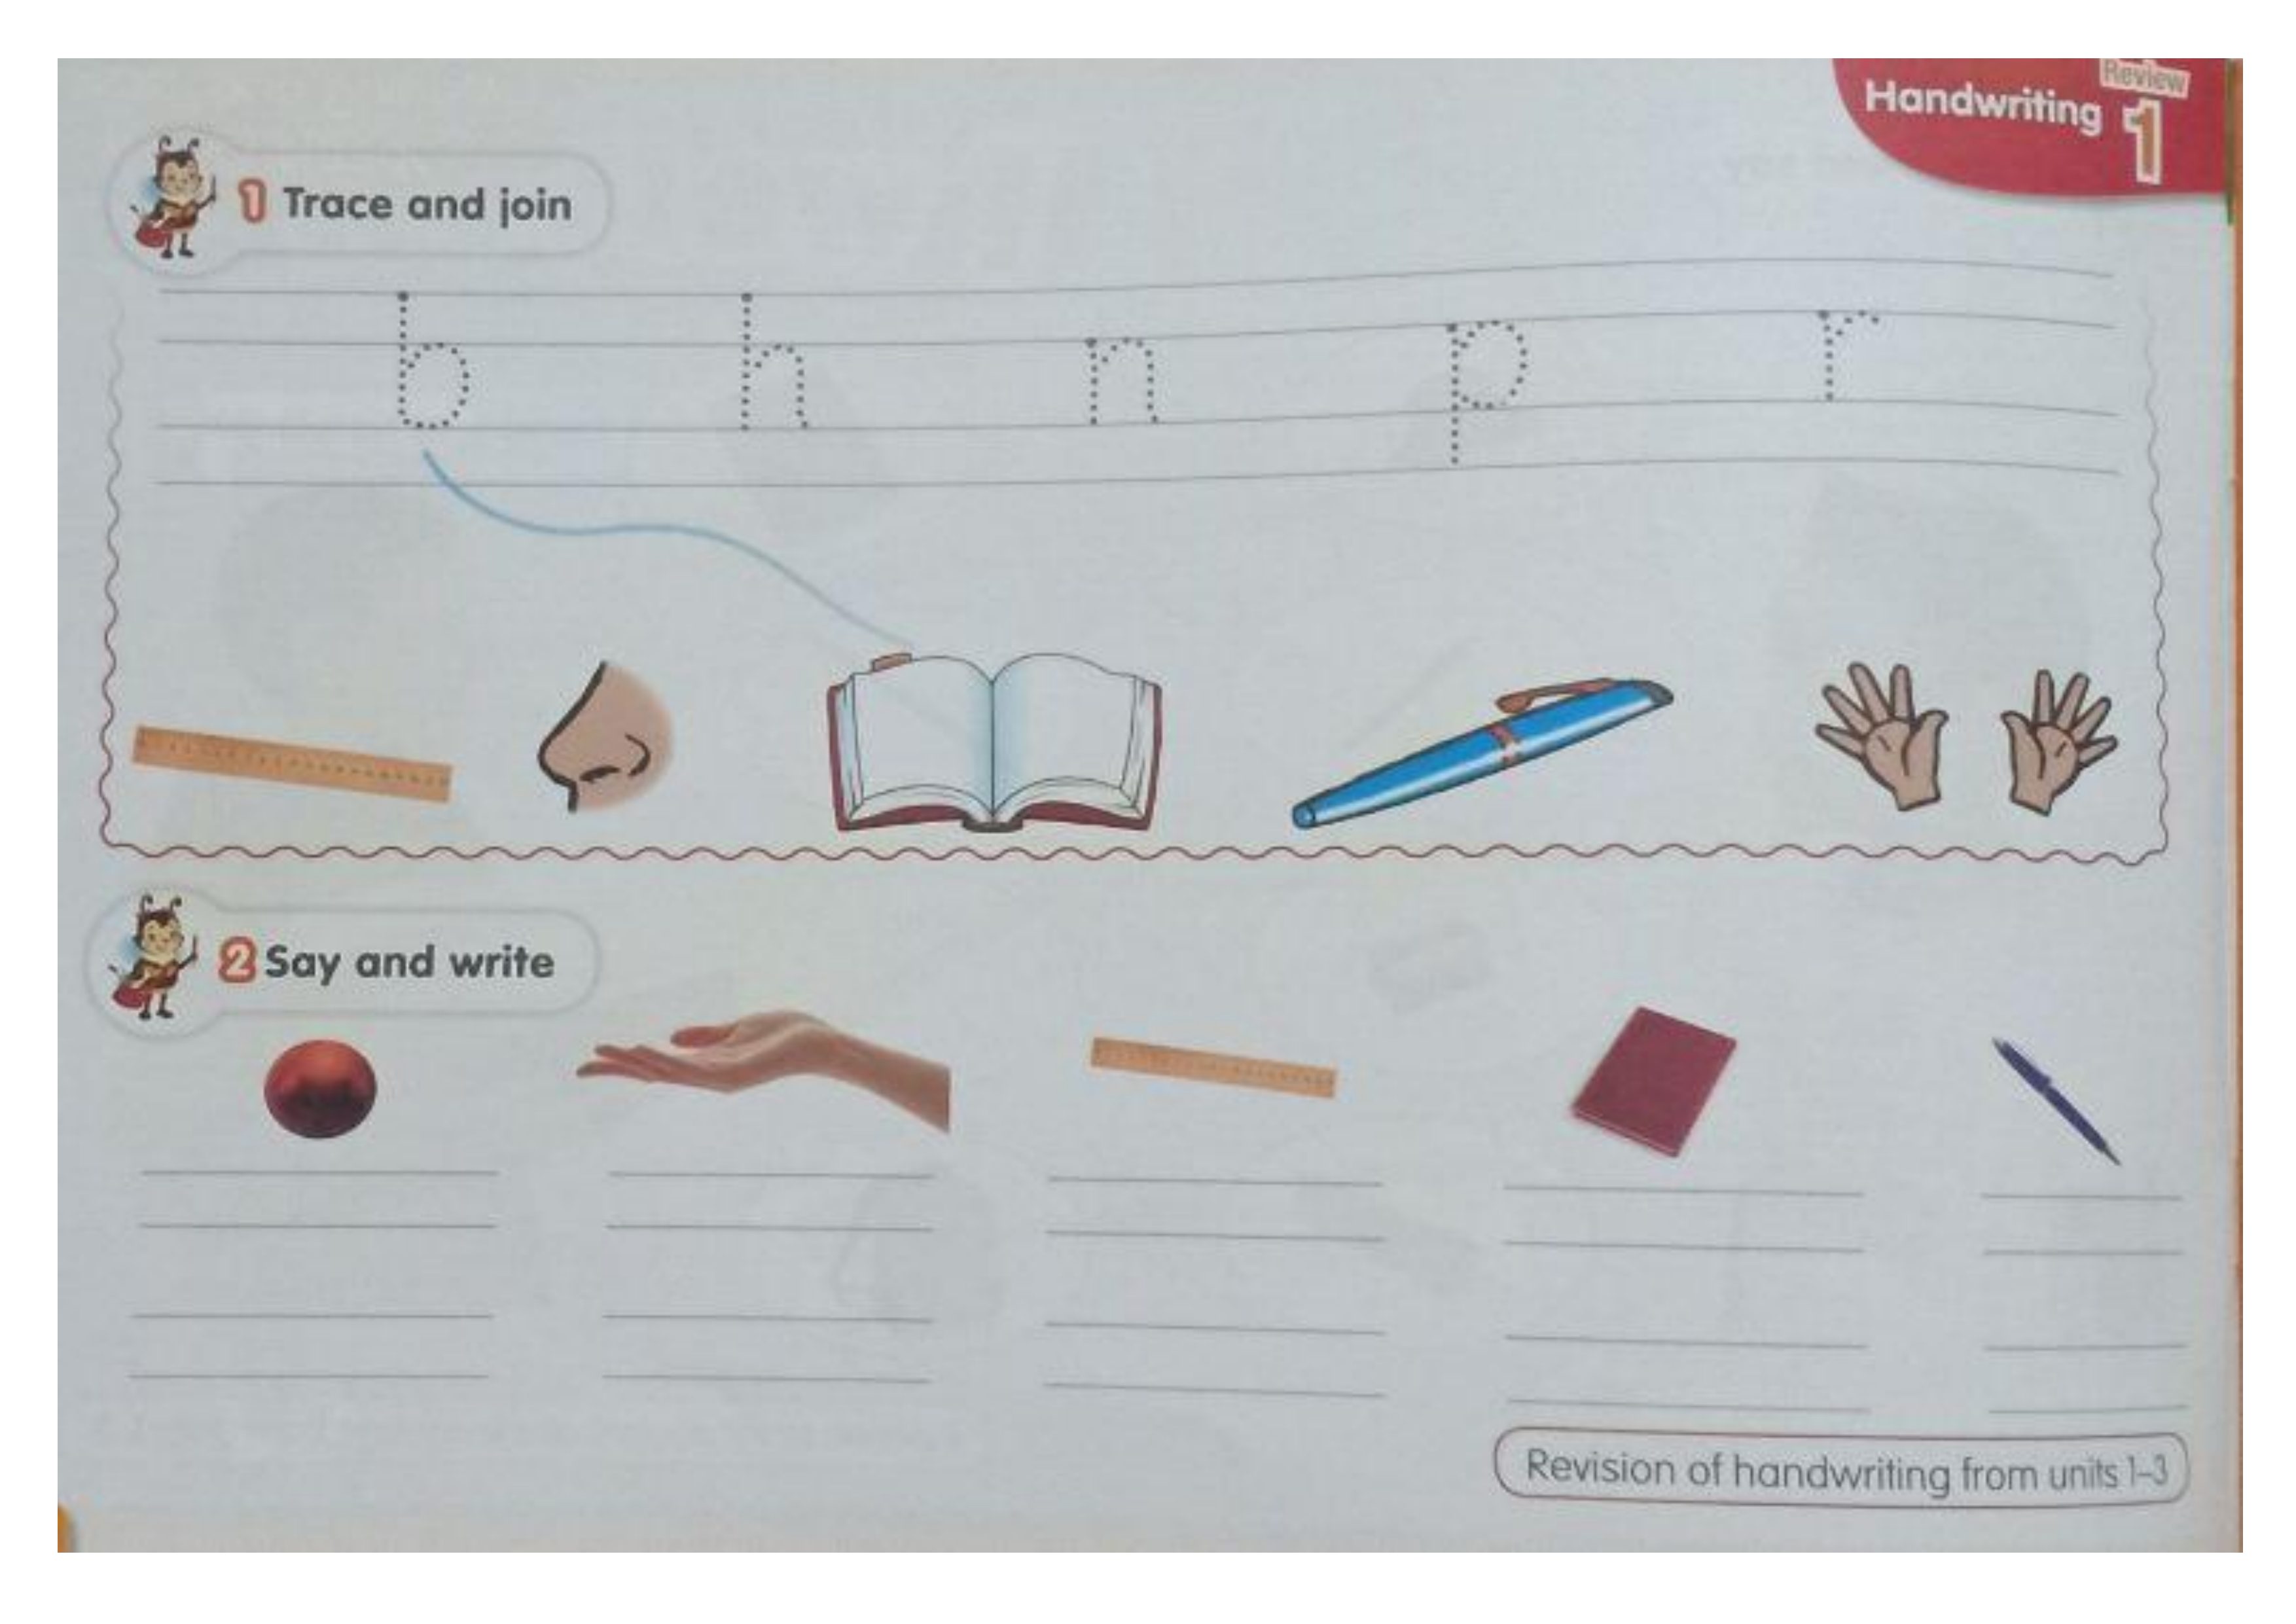 Review
Handwriting 1
1 Trace and join
b h n p r
2 Say and write
Revision of handwriting from units 1-3